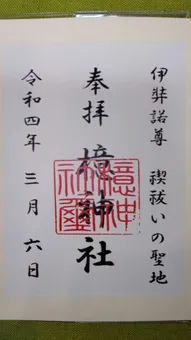 伊弉諾尊 禊祓いの聖地
奉拝 檍神社
檍神
社璽
令和四年 三月 六日